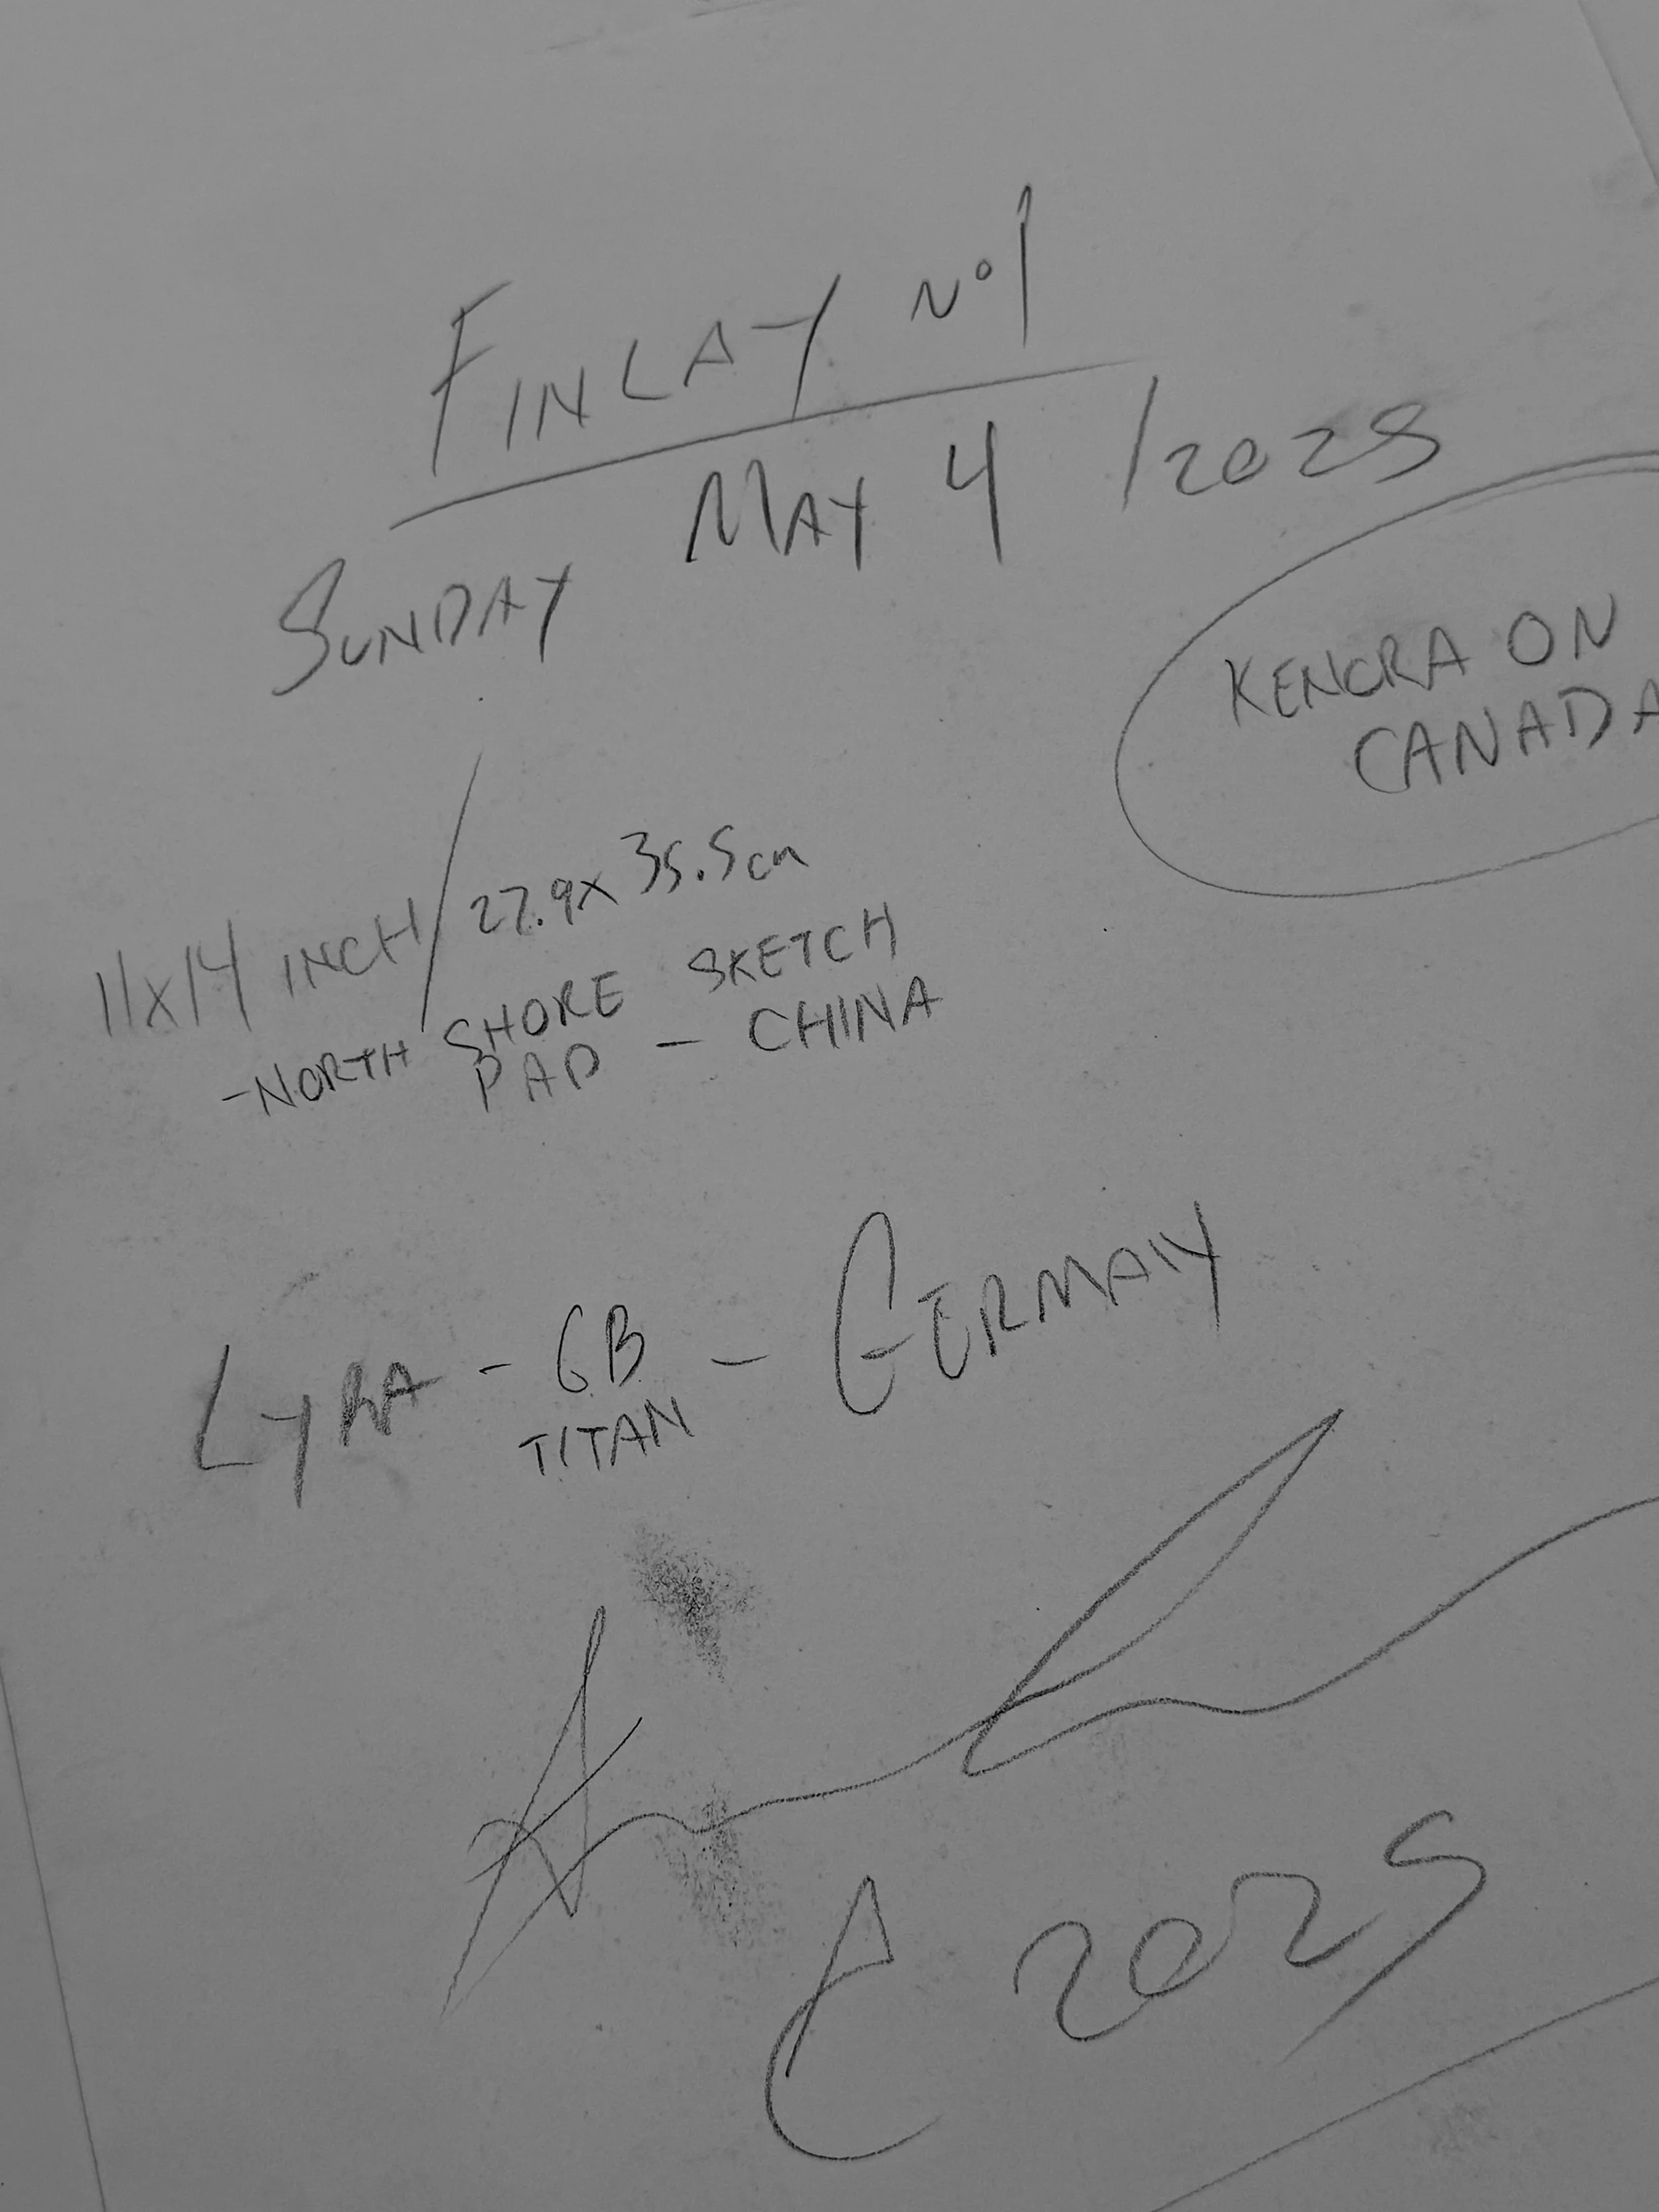 FINLAY Nº1
SUNDAY MAY 4 /2025
KENORA ON
CANADA
11x14 INCH / 27.9x35.5cm
-NORTH SHORE SKETCH
PAD - CHINA
LYRA - 6B - GERMANY
TITAN
C 2025